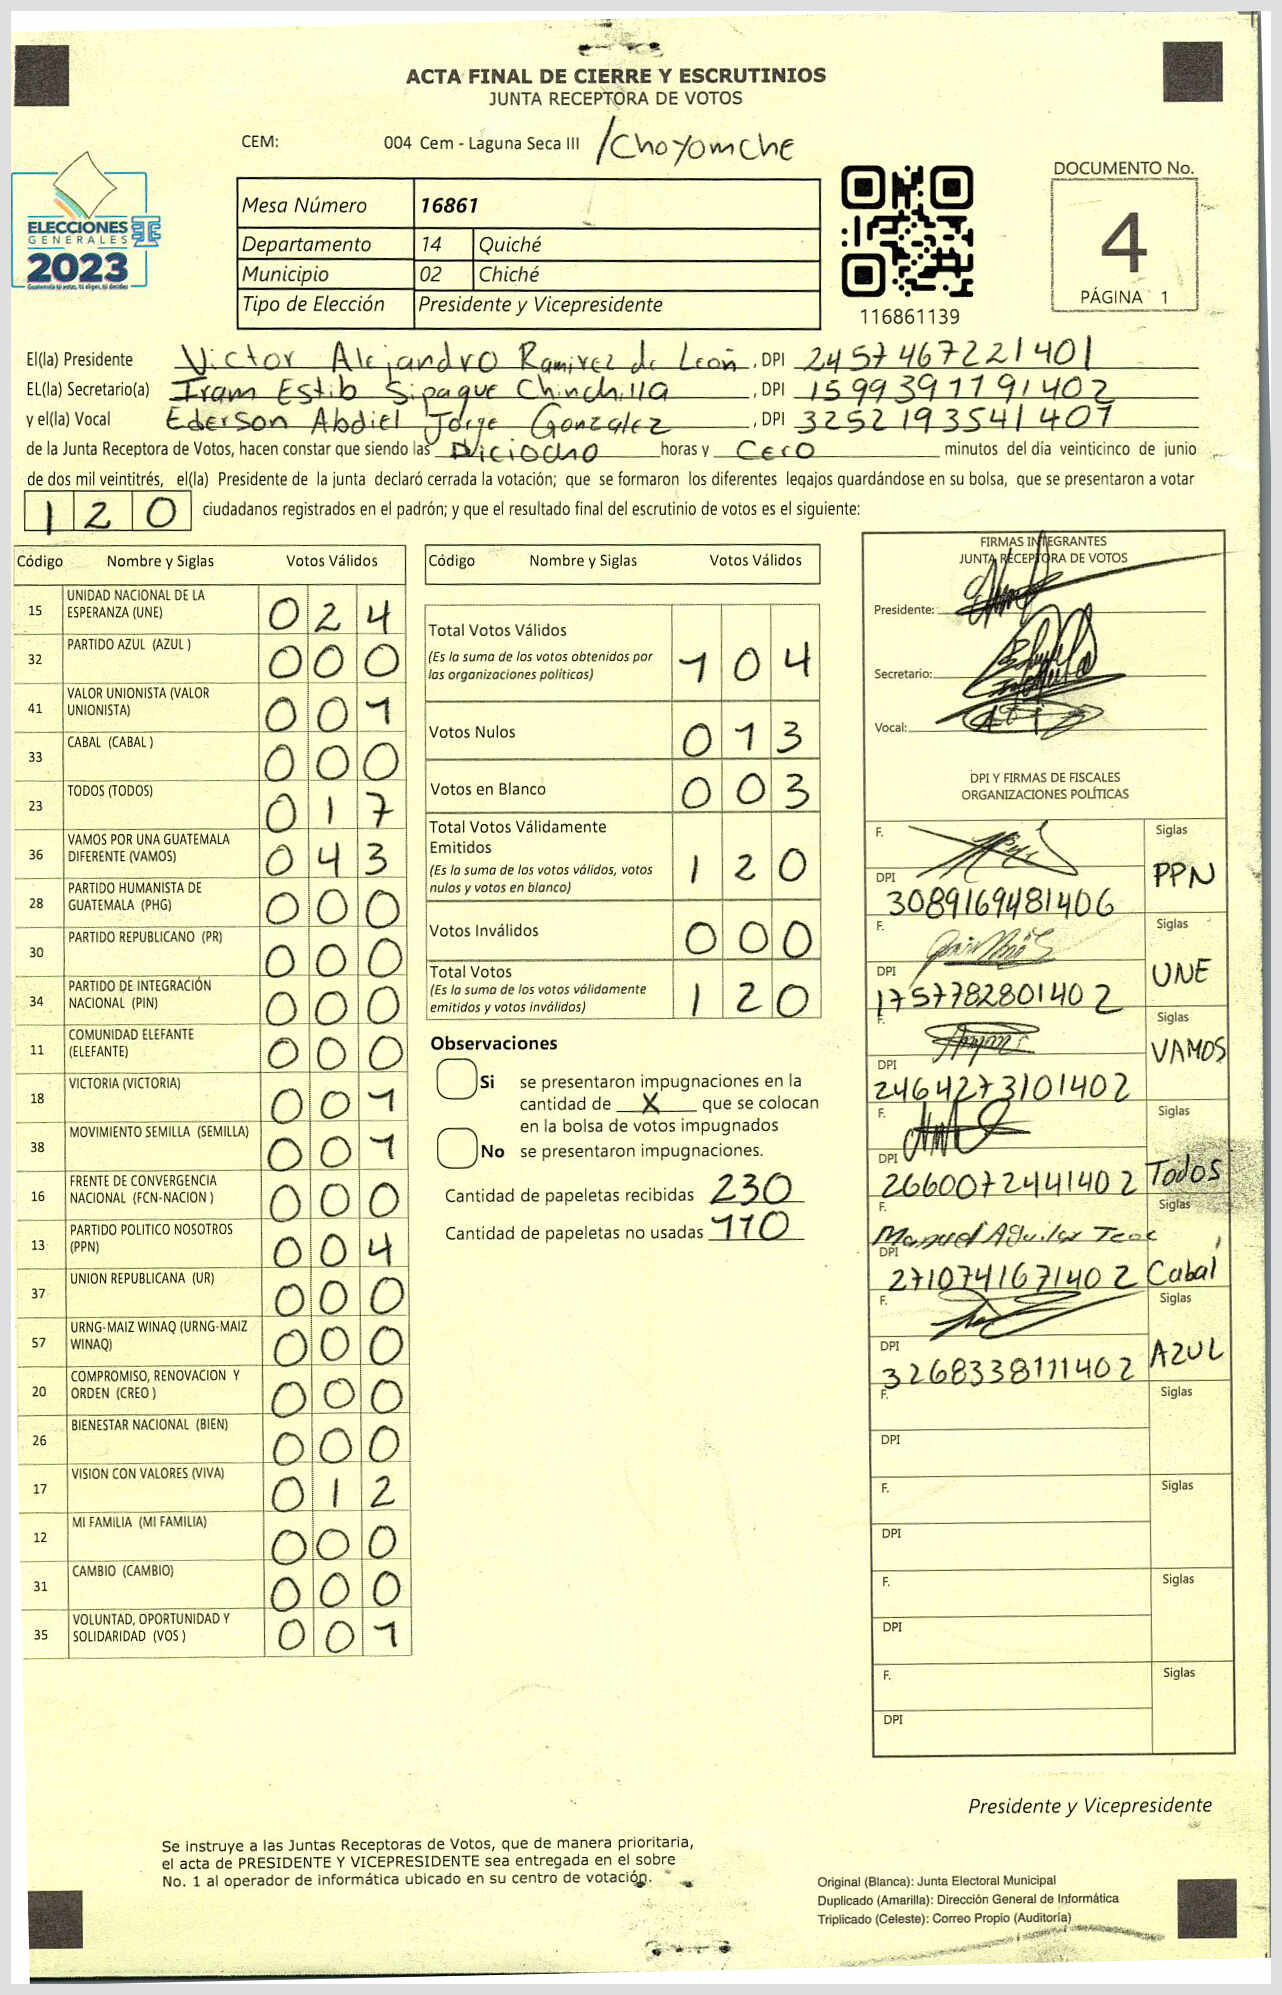 ACTA FINAL DE CIERRE Y ESCRUTINIOS
JUNTA RECEPTORA DE VOTOS
CEM: 004 Cem - Laguna Seca III /Choyomche
ELECCIONES
GENERALES
2023
Mesa Número 16861
Departamento 14 Quiché
Municipio 02 Chiché
Tipo de Elección Presidente y Vicepresidente
116861139
DOCUMENTO No.
4
PÁGINA 1
El(la) Presidente Victor Alejandro Ramirez de León, DPI 2457467221401
EL(la) Secretario(a) Iram Estib Sipaque Chinchilla, DPI 1599391791402
y el(la) Vocal Ederson Abdiel Jorge Gonzalez, DPI 3252193541407
de la Junta Receptora de Votos, hacen constar que siendo las Diciocho horas y Cero minutos del día veinticinco de junio
de dos mil veintitrés, el(la) Presidente de la junta declaró cerrada la votación; que se formaron los diferentes legajos guardándose en su bolsa, que se presentaron a votar
120 ciudadanos registrados en el padrón; y que el resultado final del escrutinio de votos es el siguiente:
Código Nombre y Siglas Votos Válidos
15 UNIDAD NACIONAL DE LA ESPERANZA (UNE) 024
32 PARTIDO AZUL (AZUL ) 000
41 VALOR UNIONISTA (VALOR UNIONISTA) 001
33 CABAL (CABAL ) 000
23 TODOS (TODOS) 017
36 VAMOS POR UNA GUATEMALA DIFERENTE (VAMOS) 043
28 PARTIDO HUMANISTA DE GUATEMALA (PHG) 000
30 PARTIDO REPUBLICANO (PR) 000
34 PARTIDO DE INTEGRACIÓN NACIONAL (PIN) 000
11 COMUNIDAD ELEFANTE (ELEFANTE) 000
18 VICTORIA (VICTORIA) 001
38 MOVIMIENTO SEMILLA (SEMILLA) 001
16 FRENTE DE CONVERGENCIA NACIONAL (FCN-NACION ) 000
13 PARTIDO POLITICO NOSOTROS (PPN) 004
37 UNION REPUBLICANA (UR) 000
57 URNG-MAIZ WINAQ (URNG-MAIZ WINAQ) 000
20 COMPROMISO, RENOVACION Y ORDEN (CREO ) 000
26 BIENESTAR NACIONAL (BIEN) 000
17 VISION CON VALORES (VIVA) 012
12 MI FAMILIA (MI FAMILIA) 000
31 CAMBIO (CAMBIO) 000
35 VOLUNTAD, OPORTUNIDAD Y SOLIDARIDAD (VOS ) 001
Código Nombre y Siglas Votos Válidos
Total Votos Válidos 104
(Es la suma de los votos obtenidos por
las organizaciones políticas)
Votos Nulos 013
Votos en Blanco 003
Total Votos Válidamente
Emitidos 120
(Es la suma de los votos válidos, votos
nulos y votos en blanco)
Votos Inválidos 000
Total Votos 120
(Es la suma de los votos válidamente
emitidos y votos inválidos)
Observaciones
Si se presentaron impugnaciones en la
cantidad de X que se colocan
en la bolsa de votos impugnados
No se presentaron impugnaciones.
Cantidad de papeletas recibidas 230
Cantidad de papeletas no usadas 110
FIRMAS INTEGRANTES
JUNTA RECEPTORA DE VOTOS
Presidente:
Secretario:
Vocal:
DPI Y FIRMAS DE FISCALES
ORGANIZACIONES POLÍTICAS
F. Siglas
DPI 3089169481406 PPN
F. Siglas
DPI 1757782801402 UNE
F. Siglas
DPI 2464273101402 VAMOS
F. Siglas
DPI 2660072441402 Todos
F. Manuel Aguilar Siglas
DPI 2710741671402 Cabal
F. Siglas
DPI 3268338111402 AZUL
F. Siglas
DPI
F. Siglas
DPI
F. Siglas
DPI
F. Siglas
DPI
Presidente y Vicepresidente
Se instruye a las Juntas Receptoras de Votos, que de manera prioritaria,
el acta de PRESIDENTE Y VICEPRESIDENTE sea entregada en el sobre
No. 1 al operador de informática ubicado en su centro de votación.
Original (Blanca): Junta Electoral Municipal
Duplicado (Amarilla): Dirección General de Informática
Triplicado (Celeste): Correo Propio (Auditoría)